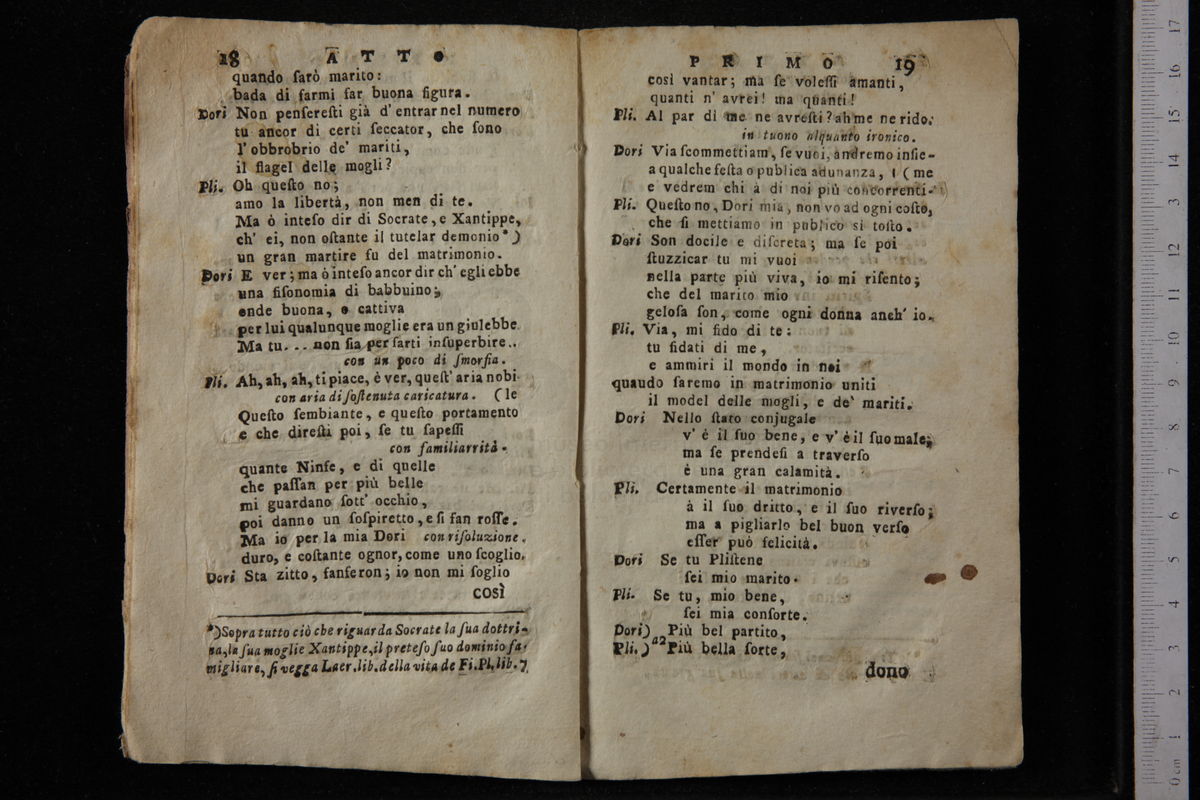 18 ATTO
quando ſarò marito:
bada di farmi far buona figura.
Dori Non penſereſti già d'entrar nel numero
tu ancor di certi ſeccator, che ſono
l'obbrobrio de' mariti,
il flagel delle mogli?
Pli. Oh queſto no;
amo la libertà, non men di te.
Ma ò inteſo dir di Socrate, e Xantippe,
ch'ei, non oſtante il tutelar demonio*)
un gran martire fu del matrimonio.
Dori E ver; ma ò inteſo ancor dir ch'egli ebbe
una fiſonomia di babbuino;
onde buona, o cattiva
per lui qualunque moglie era un giulebbe
Ma tu... non ſia per farti inſuperbire..
con un poco di ſmorfia.
Pli. Ah, ah, ah, ti piace, è ver, queſt'aria nobi-
con aria di ſoſtenuta caricatura. (le
Queſto ſembiante, e queſto portamento
e che direſti poi, ſe tu ſapeſſi
con familiarrità.
quante Ninfe, e di quelle
che paſſan per più belle
mi guardano ſott'occhio,
poi danno un ſoſpiretto, e ſi fan roſſe.
Ma io per la mia Dori con riſoluzione.
duro, e coſtante ognor, come uno ſcoglio.
Dori Sta zitto, fanferon; io non mi ſoglio
così
*) Sopra tutto ciò che riguarda Socrate la ſua dottri-
na, la ſua moglie Xantippe, il preteſo ſuo dominio fa-
migliare, ſi vegga Laer. lib. della vita de Fi. Pl. lib. 7
PRIMO 19
così vantar; ma ſe voleſſi amanti,
quanti n'avrei! ma quanti!
Pli. Al par di me ne avreſti? ah me ne rido.
in tuono alquanto ironico.
Dori Via ſcommettiam, ſe vuoi, andremo inſie-
a qualche feſta o publica adunanza, (me
e vedrem chi à di noi più concorrenti.
Pli. Queſto no, Dori mia, non vo ad ogni coſto,
che ſi mettiamo in publico sì toſto.
Dori Son docile e diſcreta; ma ſe poi
ſtuzzicar tu mi vuoi
nella parte più viva, io mi riſento;
che del marito mio
geloſa ſon, come ogni donna anch'io.
Pli. Via, mi fido di te:
tu fidati di me,
e ammiri il mondo in noi
quaudo ſaremo in matrimonio uniti
il model delle mogli, e de' mariti.
Dori Nello ſtato conjugale
v'è il ſuo bene, e v'è il ſuo male;
ma ſe prendeſi a traverſo
è una gran calamità.
Pli. Certamente il matrimonio
à il ſuo dritto, e il ſuo riverſo;
ma a pigliarlo bel buon verſo
eſſer può felicità.
Dori Se tu Pliſtene
ſei mio marito.
Pli. Se tu, mio bene,
ſei mia conſorte.
Dori) Più bel partito,
Pli. ) a2 Più bella ſorte,
dono